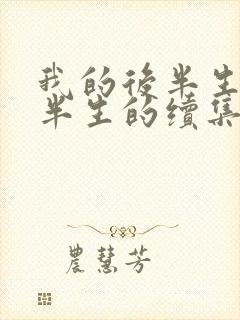 我的後半生
半生的續集
農慧芳